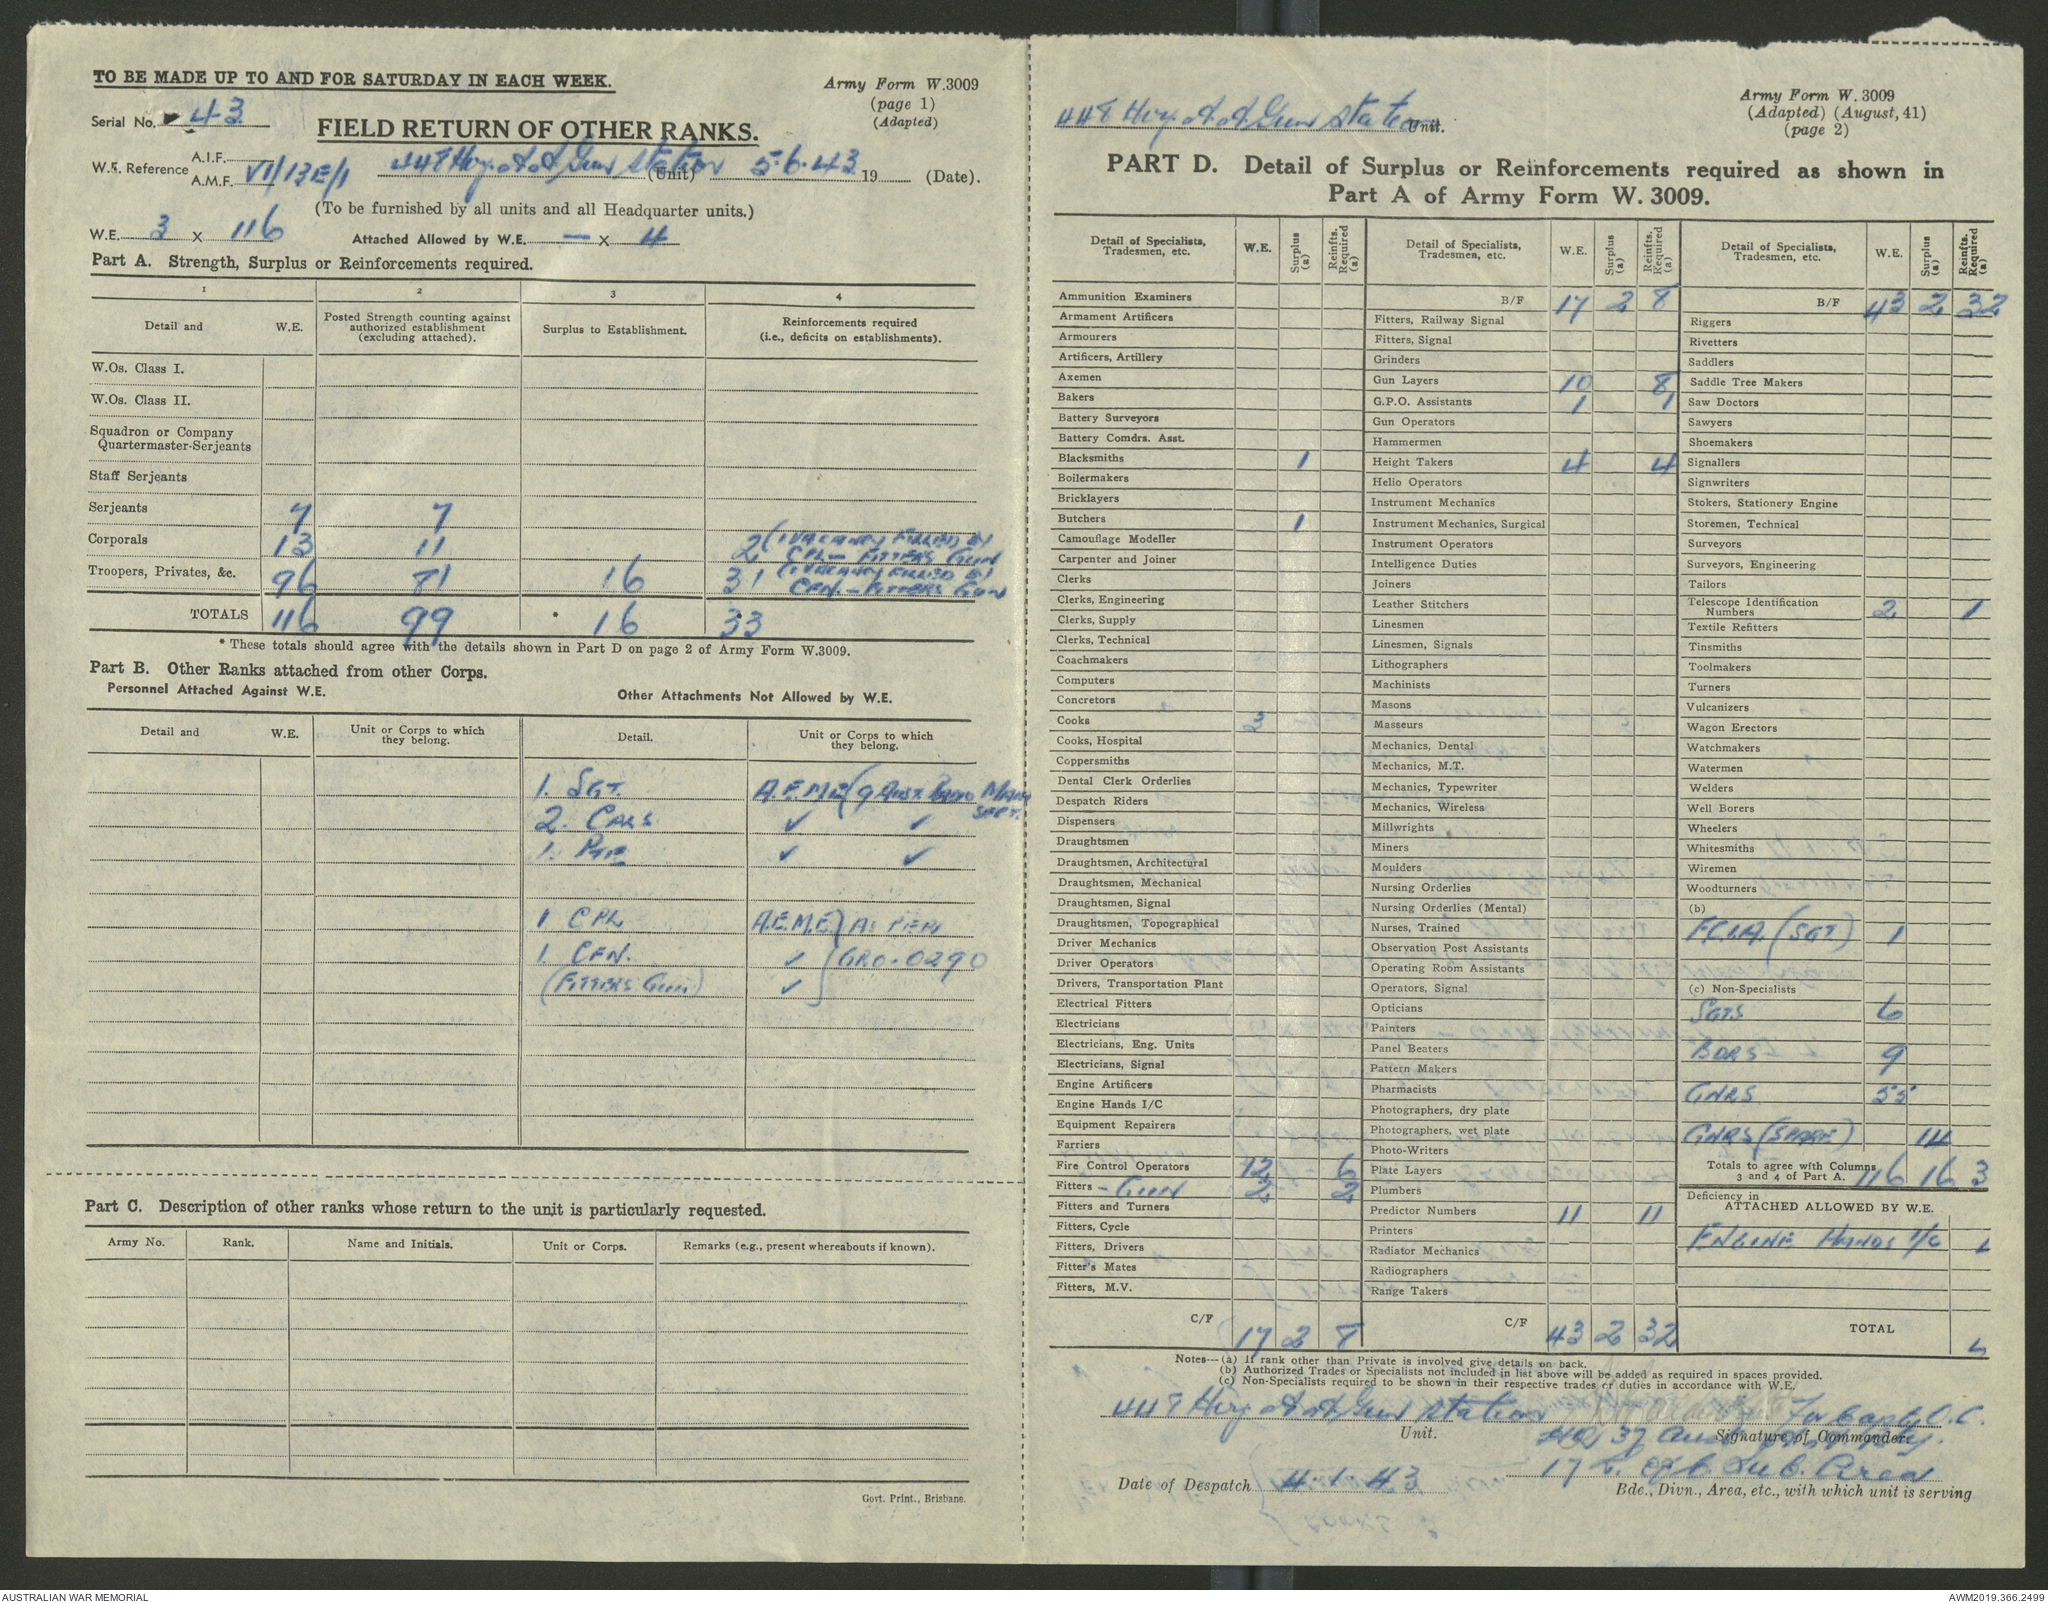 TO BE MADE UP TO AND FOR SATURDAY IN EACH WEEK.
Army Form W.3009
(page 1)
(Adapted)
Serial No. 43
FIELD RETURN OF OTHER RANKS.
W.E. Reference A.I.F.
A.M.F. VI/13E/1
448 Hvy. A.A. Gun Station (Unit) 5.6.43 19 (Date).
(To be furnished by all units and all Headquarter units.)
W.E. 3 x 116 Attached Allowed by W.E. — x 4
Part A. Strength, Surplus or Reinforcements required.
1 2 3 4
Detail and W.E. Posted Strength counting against authorized establishment (excluding attached). Surplus to Establishment. Reinforcements required (i.e., deficits on establishments).
W.Os. Class I.
W.Os. Class II.
Squadron or Company
Quartermaster-Serjeants
Staff Serjeants
Serjeants 7 7
Corporals 13 11 2 (1 VACANCY FILLED BY CPL — FITTERS GUN
Troopers, Privates, &c. 96 81 16 31 (1 VACANCY FILLED BY CFN. — FITTERS GUN
TOTALS 116 99 * 16 33
* These totals should agree with the details shown in Part D on page 2 of Army Form W.3009.
Part B. Other Ranks attached from other Corps.
Personnel Attached Against W.E. Other Attachments Not Allowed by W.E.
Detail and W.E. Unit or Corps to which they belong. Detail. Unit or Corps to which they belong.
1. SGT. A.E.M.E (9 AUST. RADIO MAIN SECT.
2. CPLS ✓ ✓
1. PTE ✓ ✓
1 CPL A.E.M.E) AS PER
1. CFN. ✓ GRO. 0290
(FITTERS GUN) ✓
Part C. Description of other ranks whose return to the unit is particularly requested.
Army No. Rank. Name and Initials. Unit or Corps. Remarks (e.g., present whereabouts if known).
Govt. Print., Brisbane.
448 Hvy. A.A. Gun Station Unit.
Army Form W. 3009
(Adapted) (August, 41)
(page 2)
PART D. Detail of Surplus or Reinforcements required as shown in
Part A of Army Form W. 3009.
Detail of Specialists, Tradesmen, etc. W.E. Surplus (a) Reinfts. Required (a)
Ammunition Examiners
Armament Artificers
Armourers
Artificers, Artillery
Axemen
Bakers
Battery Surveyors
Battery Comdrs. Asst.
Blacksmiths 1
Boilermakers
Bricklayers
Butchers 1
Camouflage Modeller
Carpenter and Joiner
Clerks
Clerks, Engineering
Clerks, Supply
Clerks, Technical
Coachmakers
Computers
Concretors
Cooks 3
Cooks, Hospital
Coppersmiths
Dental Clerk Orderlies
Despatch Riders
Dispensers
Draughtsmen
Draughtsmen, Architectural
Draughtsmen, Mechanical
Draughtsmen, Signal
Draughtsmen, Topographical
Driver Mechanics
Driver Operators
Drivers, Transportation Plant
Electrical Fitters
Electricians
Electricians, Eng. Units
Electricians, Signal
Engine Artificers
Engine Hands I/C
Equipment Repairers
Farriers
Fire Control Operators 12 6
Fitters - GUN 2 2
Fitters and Turners
Fitters, Cycle
Fitters, Drivers
Fitter's Mates
Fitters, M.V.
C/F 17 2 8
Detail of Specialists, Tradesmen, etc. W.E. Surplus (a) Reinfts. Required (a)
B/F 17 2 8
Fitters, Railway Signal
Fitters, Signal
Grinders
Gun Layers 10 8
G.P.O. Assistants 1 1
Gun Operators
Hammermen
Height Takers 4 4
Helio Operators
Instrument Mechanics
Instrument Mechanics, Surgical
Instrument Operators
Intelligence Duties
Joiners
Leather Stitchers
Linesmen
Linesmen, Signals
Lithographers
Machinists
Masons
Masseurs
Mechanics, Dental
Mechanics, M.T.
Mechanics, Typewriter
Mechanics, Wireless
Millwrights
Miners
Moulders
Nursing Orderlies
Nursing Orderlies (Mental)
Nurses, Trained
Observation Post Assistants
Operating Room Assistants
Operators, Signal
Opticians
Painters
Panel Beaters
Pattern Makers
Pharmacists
Photographers, dry plate
Photographers, wet plate
Photo-Writers
Plate Layers
Plumbers
Predictor Numbers 11 11
Printers
Radiator Mechanics
Radiographers
Range Takers
C/F 43 2 32
Detail of Specialists, Tradesmen, etc. W.E. Surplus (a) Reinfts. Required (a)
B/F 43 2 32
Riggers
Rivetters
Saddlers
Saddle Tree Makers
Saw Doctors
Sawyers
Shoemakers
Signallers
Signwriters
Stokers, Stationery Engine
Storemen, Technical
Surveyors
Surveyors, Engineering
Tailors
Telescope Identification
Numbers 2 1
Textile Refitters
Tinsmiths
Toolmakers
Turners
Vulcanizers
Wagon Erectors
Watchmakers
Watermen
Welders
Well Borers
Wheelers
Whitesmiths
Wiremen
Woodturners
(b)
F.C.I.A. (SGT) 1
(c) Non-Specialists
SGTS 6
BDRS 9
GNRS 55
GNRS (SPARE) 14
Totals to agree with Columns
3 and 4 of Part A. 116 16 3
Deficiency in
ATTACHED ALLOWED BY W.E.
ENGINE HANDS I/C
TOTAL
Notes—(a) If rank other than Private is involved give details on back.
(b) Authorized Trades or Specialists not included in list above will be added as required in spaces provided.
(c) Non-Specialists required to be shown in their respective trades or duties in accordance with W.E.
448 Hvy A.A. Gun Station
Unit.
For Capt. O.C.
Signature of Commander.
HQ 37 Aust
17 L. of C. Sub. Area
Date of Despatch 4.1.43
Bde., Divn., Area, etc., with which unit is serving
AUSTRALIAN WAR MEMORIAL
AWM2019.366.2499